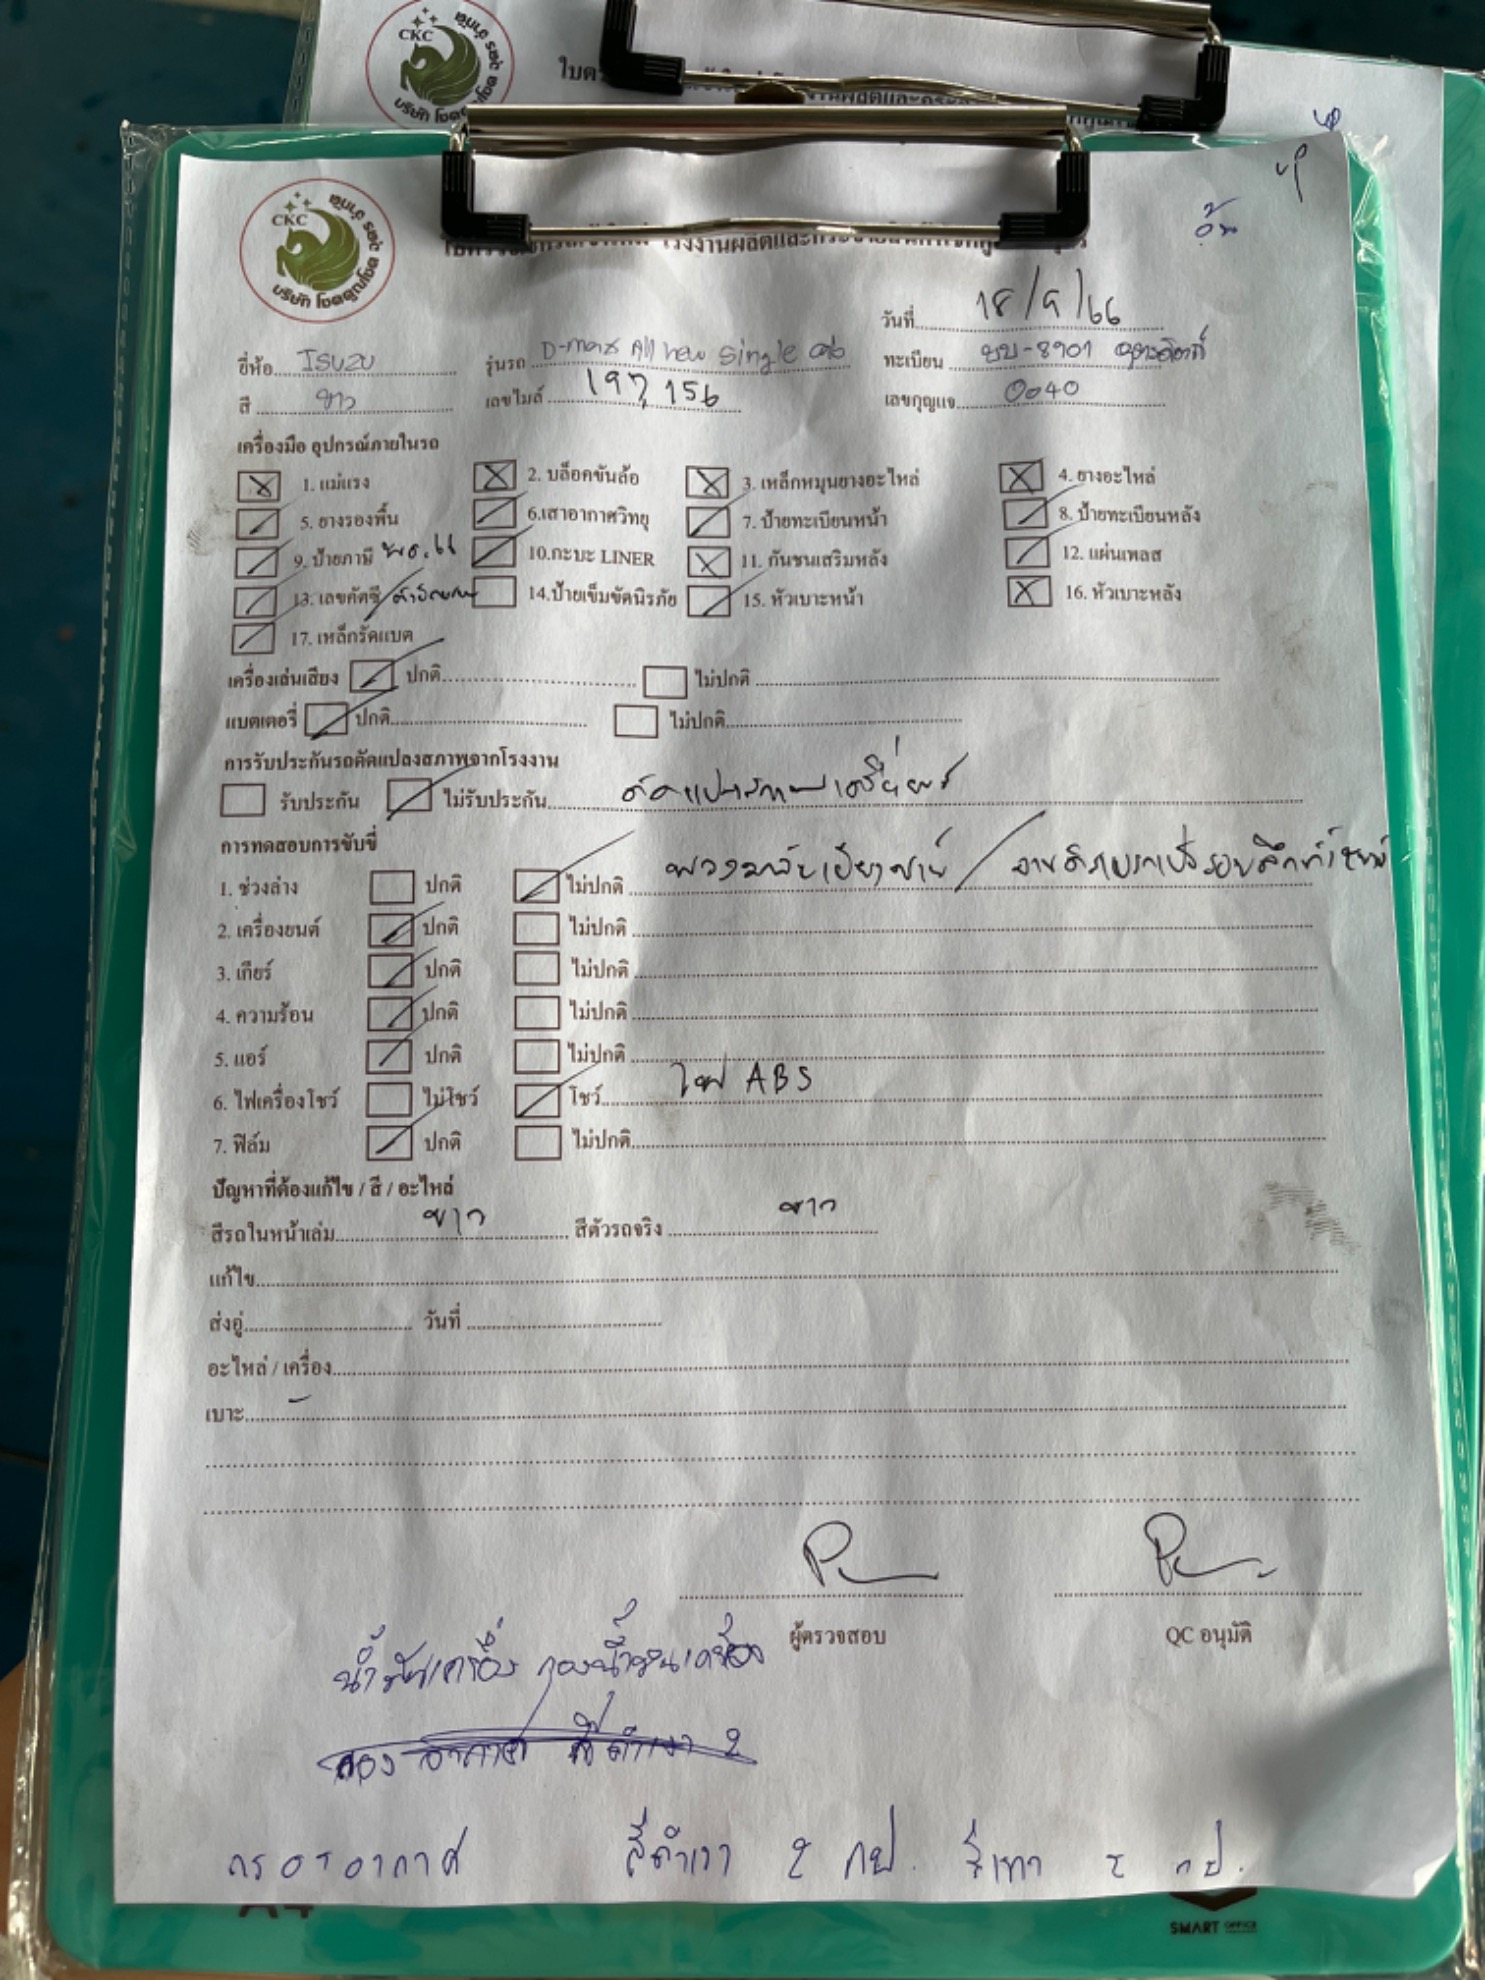 CKC
ใบตร
CKC
บริษัท โชคคูณโชค ฉัตร จำกัด
วันที่ 18/9/66
ยี่ห้อ ISUZU รุ่นรถ D-max All new single cab ทะเบียน บบ-8901 อุตรดิตถ์
สี ขาว เลขไมล์ 197,156 เลขกุญแจ 0040
เครื่องมือ อุปกรณ์ภายในรถ
1. แม่แรง 2. บล็อคขันล้อ 3. เหล็กหมุนยางอะไหล่ 4. ยางอะไหล่
5. ยางรองพื้น 6.เสาอากาศวิทยุ 7. ป้ายทะเบียนหน้า 8. ป้ายทะเบียนหลัง
9. ป้ายภาษี พ.ย. 66 10.กะบะ LINER 11. กันชนเสริมหลัง 12. แผ่นเพลส
13. เลขคัตซี 14.ป้ายเข็มขัดนิรภัย 15. หัวเบาะหน้า 16. หัวเบาะหลัง
17. เหล็กรัดแบต
เครื่องเล่นเสียง ปกติ ไม่ปกติ
แบตเตอรี่ ปกติ ไม่ปกติ
การรับประกันรถดัดแปลงสภาพจากโรงงาน
รับประกัน ไม่รับประกัน ดัดแปลงสภาพเครื่องยนต์
การทดสอบการขับขี่
1. ช่วงล่าง ปกติ ไม่ปกติ พวงมาลัยเอียงซ้าย /
2. เครื่องยนต์ ปกติ ไม่ปกติ
3. เกียร์ ปกติ ไม่ปกติ
4. ความร้อน ปกติ ไม่ปกติ
5. แอร์ ปกติ ไม่ปกติ
6. ไฟเครื่องโชว์ ไม่โชว์ โชว์ ไฟ ABS
7. ฟิล์ม ปกติ ไม่ปกติ
ปัญหาที่ต้องแก้ไข / สี / อะไหล่
สีรถในหน้าเล่ม ขาว สีตัวรถจริง ขาว
แก้ไข
ส่งอู่ วันที่
อะไหล่ / เครื่อง
เบาะ
ผู้ตรวจสอบ QC อนุมัติ
น้ำมันเครื่อง กรองน้ำมันเครื่อง
กรองอากาศ สีดำเงา 2
กรองอากาศ สีดำเงา 2 กป. สีเทา 2 กป.
A4
SMART OFFICE